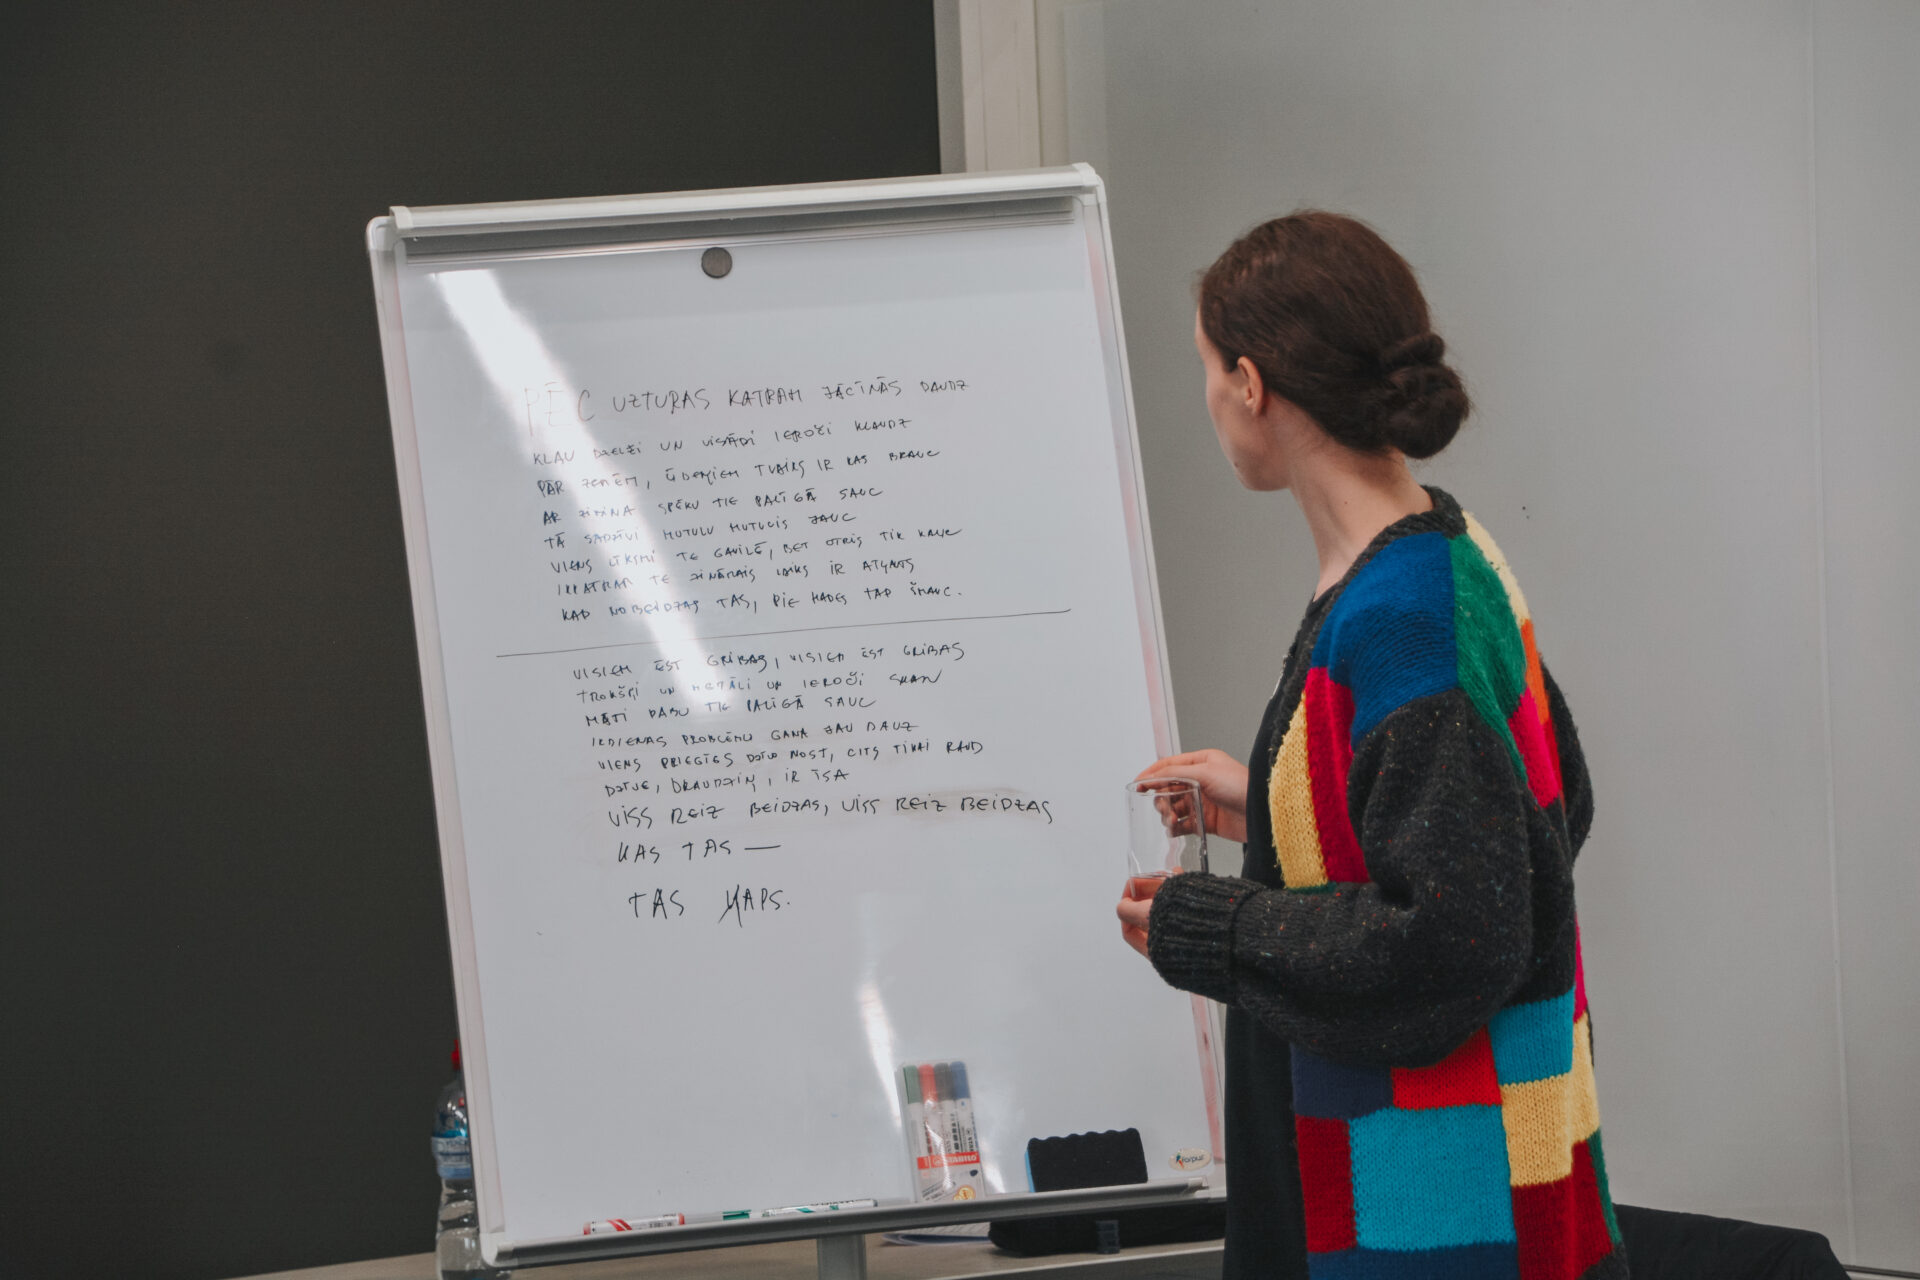 PĒC UZTURAS KATRAM JĀCĪNĀS DAUDZ
KLAU DZELŽI UN VISĀDI IEROČI KLAUDZ
PĀR ZEMĒM, ŪDEŅIEM TVAIKS IR KAS BRAUC
AR ZIŅĀ SPĒKU TIE PALĪGĀ SAUC
TĀ SADZĪVI MUTUĻU MUTUĻIS JAUC
VIENS LĪKSMI TE GAVILĒ, BET OTRIS TIK KAUC
IKKATRAM TE ZINĀMAIS LAIKS IR ATĻAUTS
KAD NOBEIDZAS TAS, PIE HADES TAP ŠMAUC.
VISIEM ĒST GRIBAS, VISIEM ĒST GRIBAS
TROKŠŅI UN METĀLI UN IEROČI SKAN
MĀTI DABU TIE PALĪGĀ SAUC
IKDIENAS PROBLĒMU GANA JAU DAUZ
VIENS PRIECĪGS DZĪVO NOST, CITS TIKAI RAUD
DZĪVE, DRAUDZIŅ, IR ĪSA
VISS REIZ BEIDZAS, VISS REIZ BEIDZAS
KAS TAS —
TAS KAPS.
STABILO
forpus